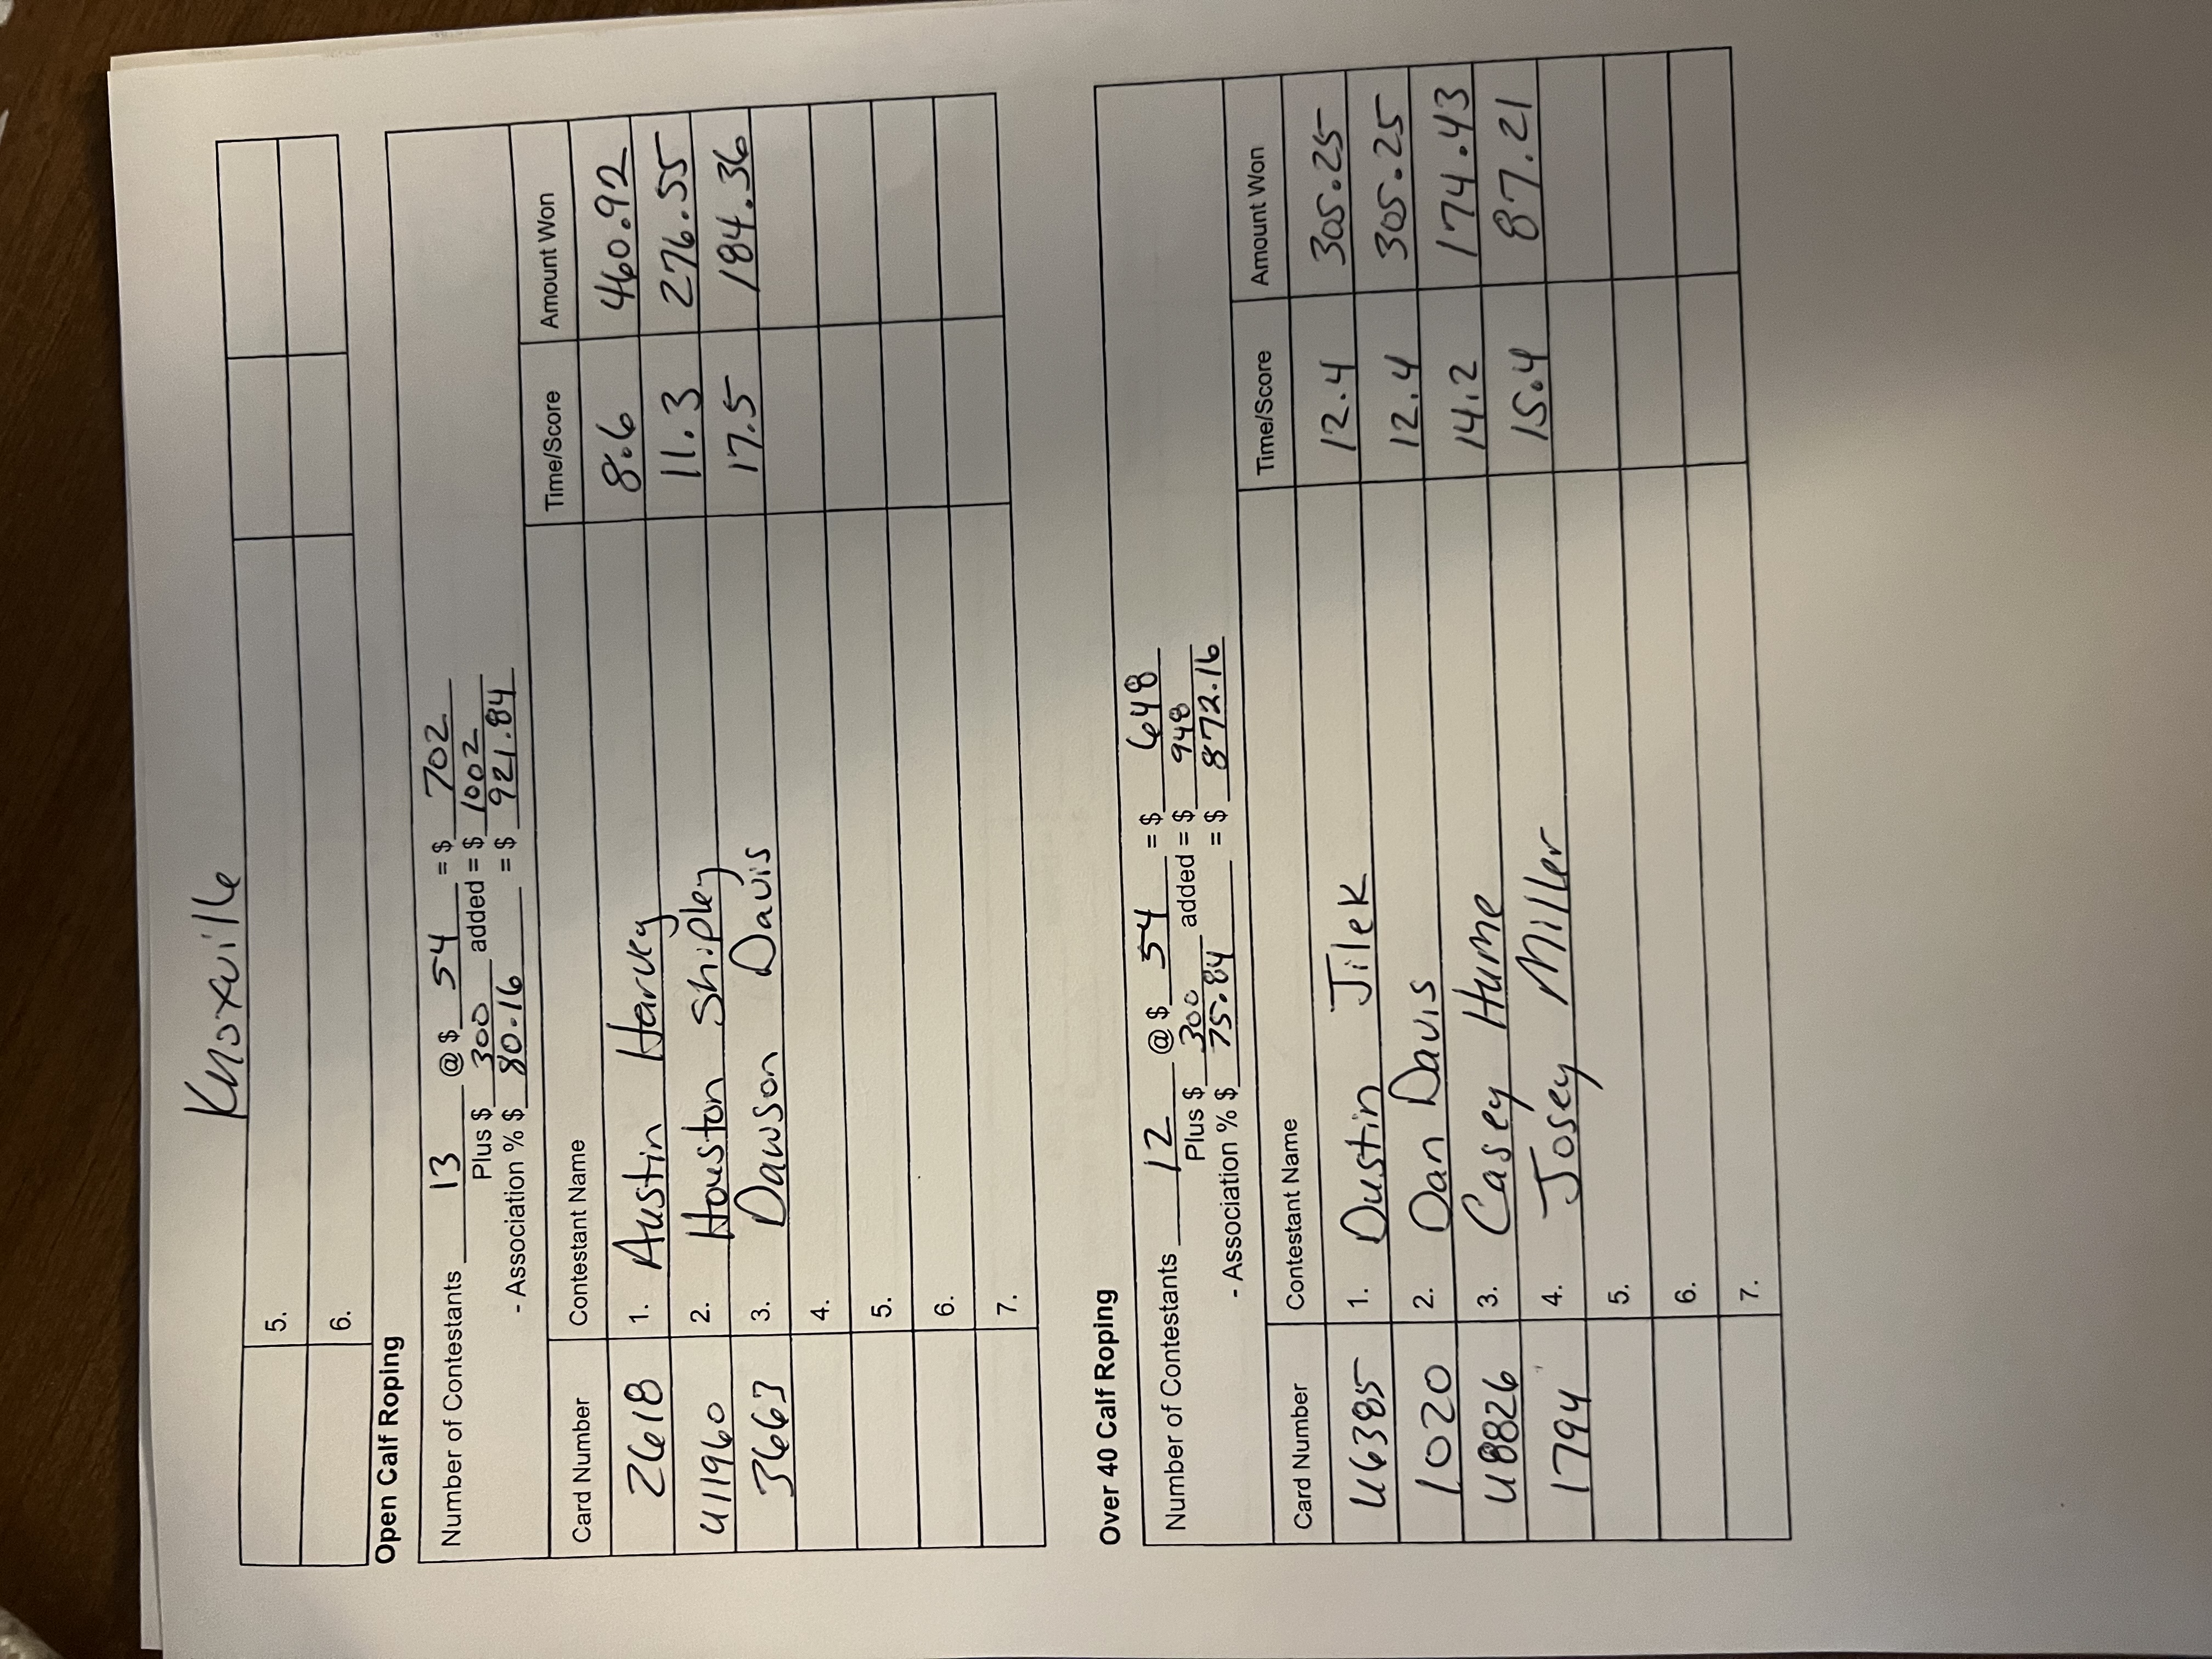 Knoxville
5.
6.
Open Calf Roping
Number of Contestants 13 @ $ 54 = $ 702
Plus $ 300 added = $ 1002
- Association % $ 80.16 = $ 921.84
Card Number Contestant Name Time/Score Amount Won
2618 1. Austin Harvey 8.6 460.92
U1960 2. Houston Shipley 11.3 276.55
3663 3. Dawson Davis 17.5 184.36
4.
5.
6.
7.
Over 40 Calf Roping
Number of Contestants 12 @ $ 54 = $ 648
Plus $ 300 added = $ 948
- Association % $ 75.84 = $ 872.16
Card Number Contestant Name Time/Score Amount Won
U6385 1. Dustin Jilek 12.4 305.25
1020 2. Dan Davis 12.4 305.25
U8826 3. Casey Hume 14.2 174.43
1794 4. Josey Miller 15.4 87.21
5.
6.
7.